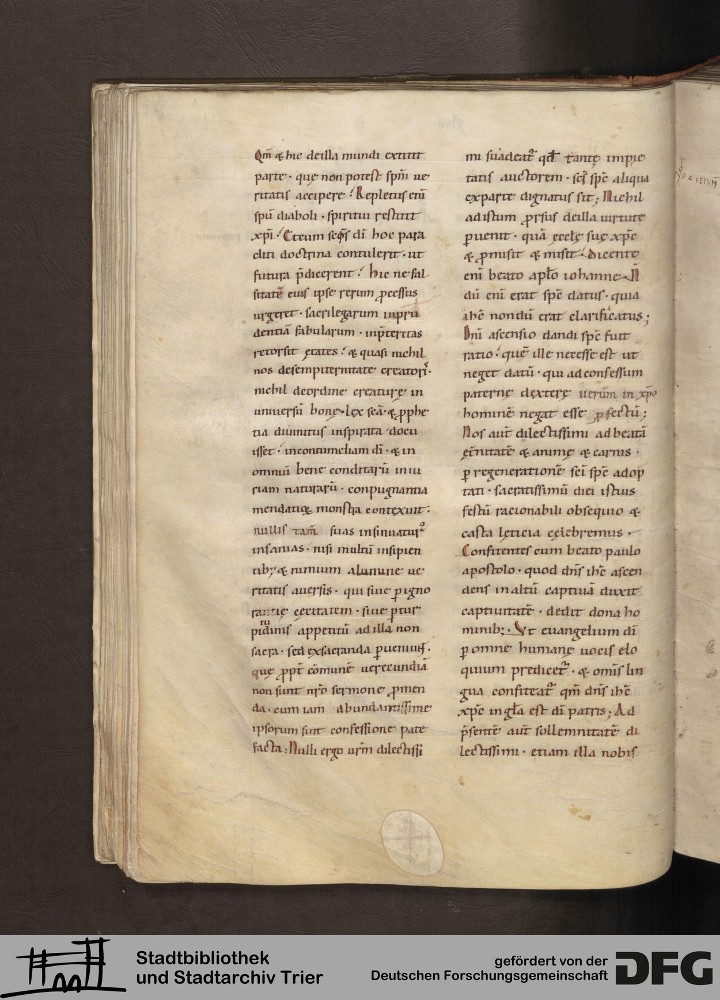 Qm̄ & hic de illa mundi extitit
parte · que non potest spm̄ ue
ritatis accipere ; Repletus enī
spū diaboli · spiritui restitit
xpi ; Et cum seqs̄ di hoc para
cliti doctrina contulerit · ut
futura p̄dicerent ; hic ne fal
sitatē eius ipse rerum ꝓcessus
urgeret · sacrilegarum inpru
dentiā fabularum · inp̄teritas
retorsit ętates ; & quasi nichil
nos de sempiternitate creatoris ·
nichil de ordine creature in
uniuersū bonę · lex scā · & ꝓphe
tia diuinitus inspirata docu
isset · incontumeliam dī · & in
omniū bene conditarū iniu
riam naturarū · conpugnantia
mendatioꝝ monstra contexuit ;
nullis tam̄ suas insinuatur
insanias · nisi multū insipien
tib; & nimium a lumine ue
ritatis auersis · qui siue ꝑ igno
rantię cęcitatem · siue ꝑ tur
pidinis appetitū ad illa non
sacra · sed exsacranda ꝑueniunt ·
que ꝓpt̄ cōmunē uerecundiā
non sunt nr̄o sermone ꝓmen
da · cum iam abundantissime
ipsorum sint confessione pate
facta ; Nulli ergo urm̄ dilectissi
mi suadeat̄ qd̄ tantę impie
tatis auctorem · scī spc̄ aliqua
ex parte dignatus sit ; Nichil
ad istum ꝓrsus de illa uirtute
ꝑuenit · quā ęcclę suę xpc̄
& ꝓmisit & misit · dicente
enī beato aplo iohanne · N
dū enī erat spc̄ datus · quia
ihc̄ nondū erat clarificatus ;
Dnī ascensio dandi spc̄ fuit
ratio ; quē ille necesse est ut
neget datū · qui ad confessum
paternę dexterę uerum in xp̄o
hominē negat esse ꝓfectū ;
Nos aut̄ dilectissimi ad beatā
ęt̄nitatē & animę & carnis ·
ꝑ regenerationē scī spc̄ adop
tati · sacratissimū diei istius
festū racionabili obsequio &
casta lęticia cęlebremus ·
Confitentes cum beato paulo
apostolo · quod dn̄s ihc̄ ascen
dens in altū captiuā duxit
captiuitatē · dedit dona ho
minib; · Vt euangelium dī
ꝑ omne humanę uocis elo
quium predicet̄ · & omīs lin
gua confiteat̄ qm̄ dn̄s ihc̄
xpc̄ in gla est dī patris ; Ad
p̄sentē aut̄ sollemnitatē di
lectissimi · etiam illa nobis
Stadtbibliothek
und Stadtarchiv Trier
gefördert von der
Deutschen Forschungsgemeinschaft
DFG